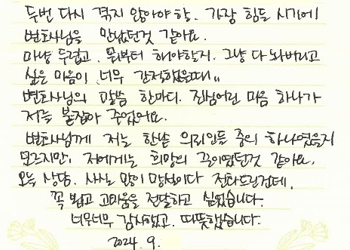 두번 다시 겪지 않아야 할. 가장 힘든 시기에
변호사님을 만났던것 같아요.
마냥 두렵고. 뭐부터 해야할지. 그냥 다 놔버리고
싶은 마음이 너무 간절했을때..
변호사님의 말씀 한마디. 진심어린 마음 하나가
저를 붙잡아 주었어요.
변호사님께 저는 한낱 의뢰인들 중의 하나였을지
모르지만, 저에게는 희망의 구원이었던것 같아요.
오늘 상담. 사실 많이 망설이다 전화드렸던건데.
꼭 뵙고 고마움을 전달하고 싶었습니다.
너무너무 감사했고. 따뜻했습니다.
2024. 9.